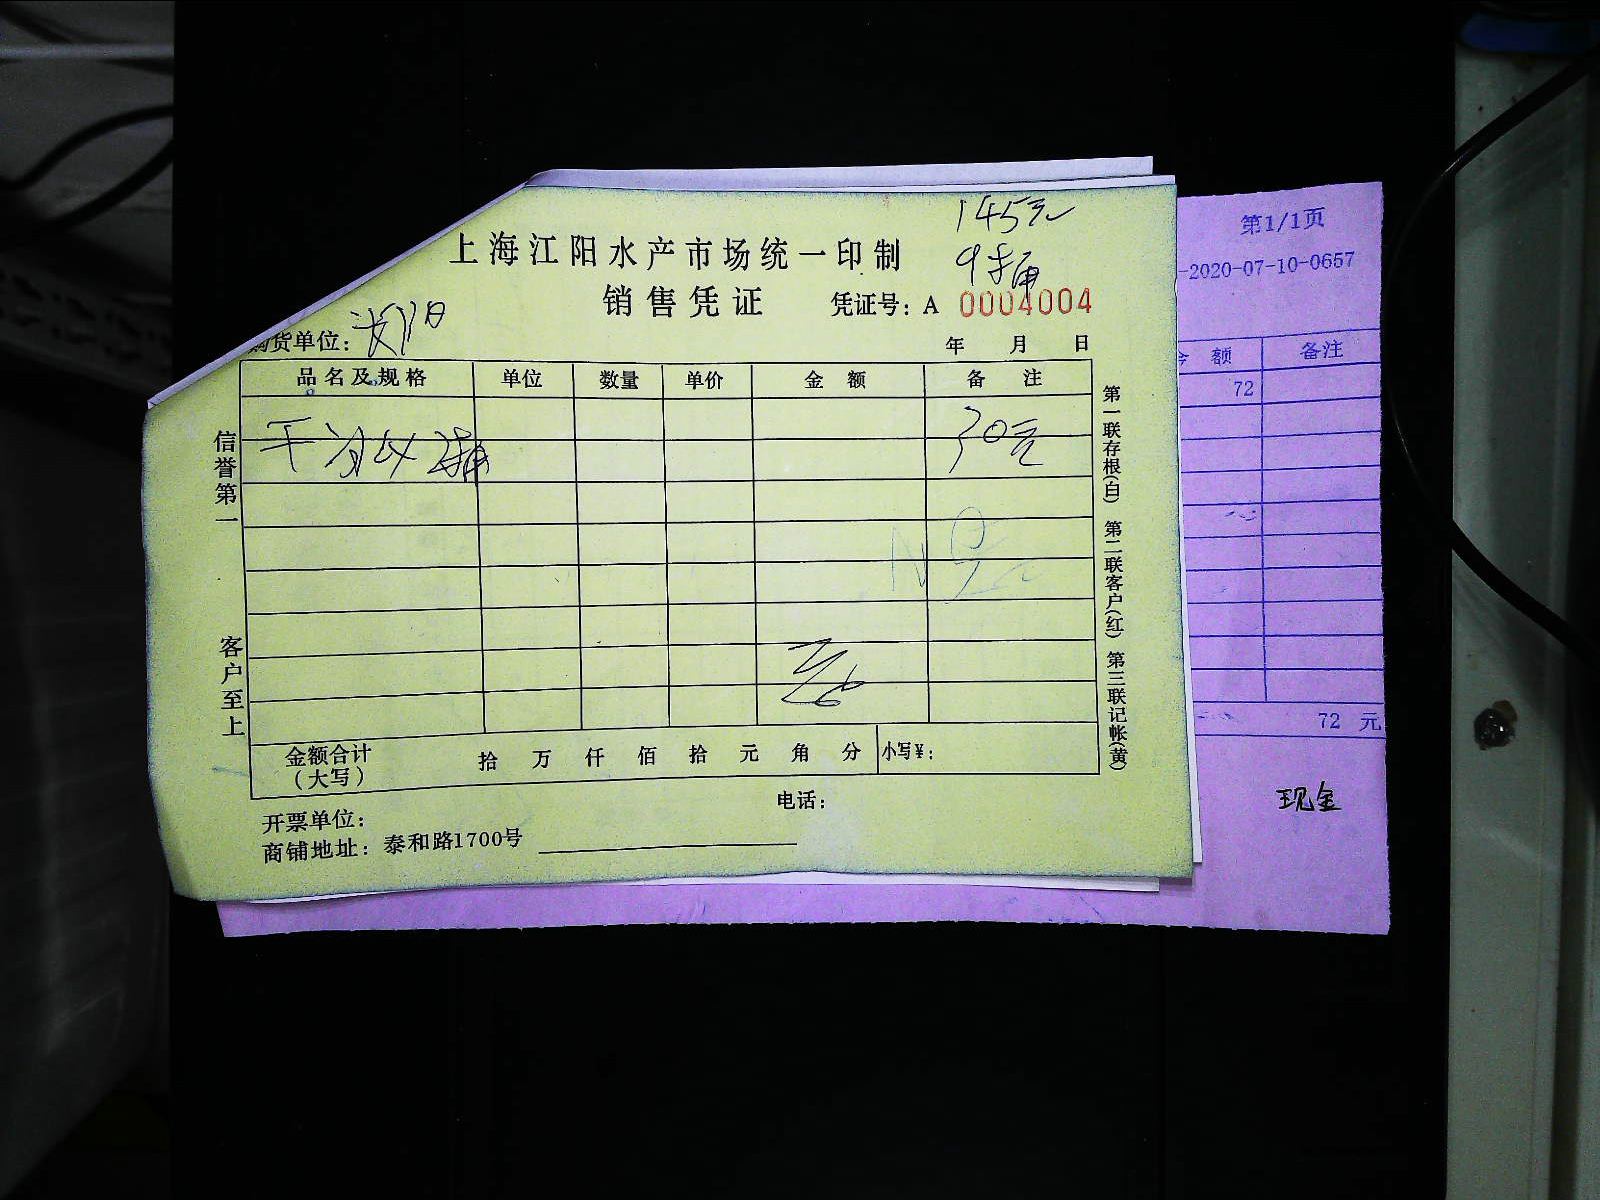 145元
上海江阳水产市场统一印制
9桶
销售凭证 凭证号：A 0004004
购货单位：
年 月 日
品名及规格 单位 数量 单价 金额 备注
30元
信誉第一
客户至上
第一联存根(白) 第二联客户(红) 第三联记帐(黄)
金额合计 拾 万 仟 佰 拾 元 角 分 小写¥：
(大写)
电话：
开票单位：
商铺地址：泰和路1700号
第1/1页
-2020-07-10-0657
额 备注
72
72 元
现金